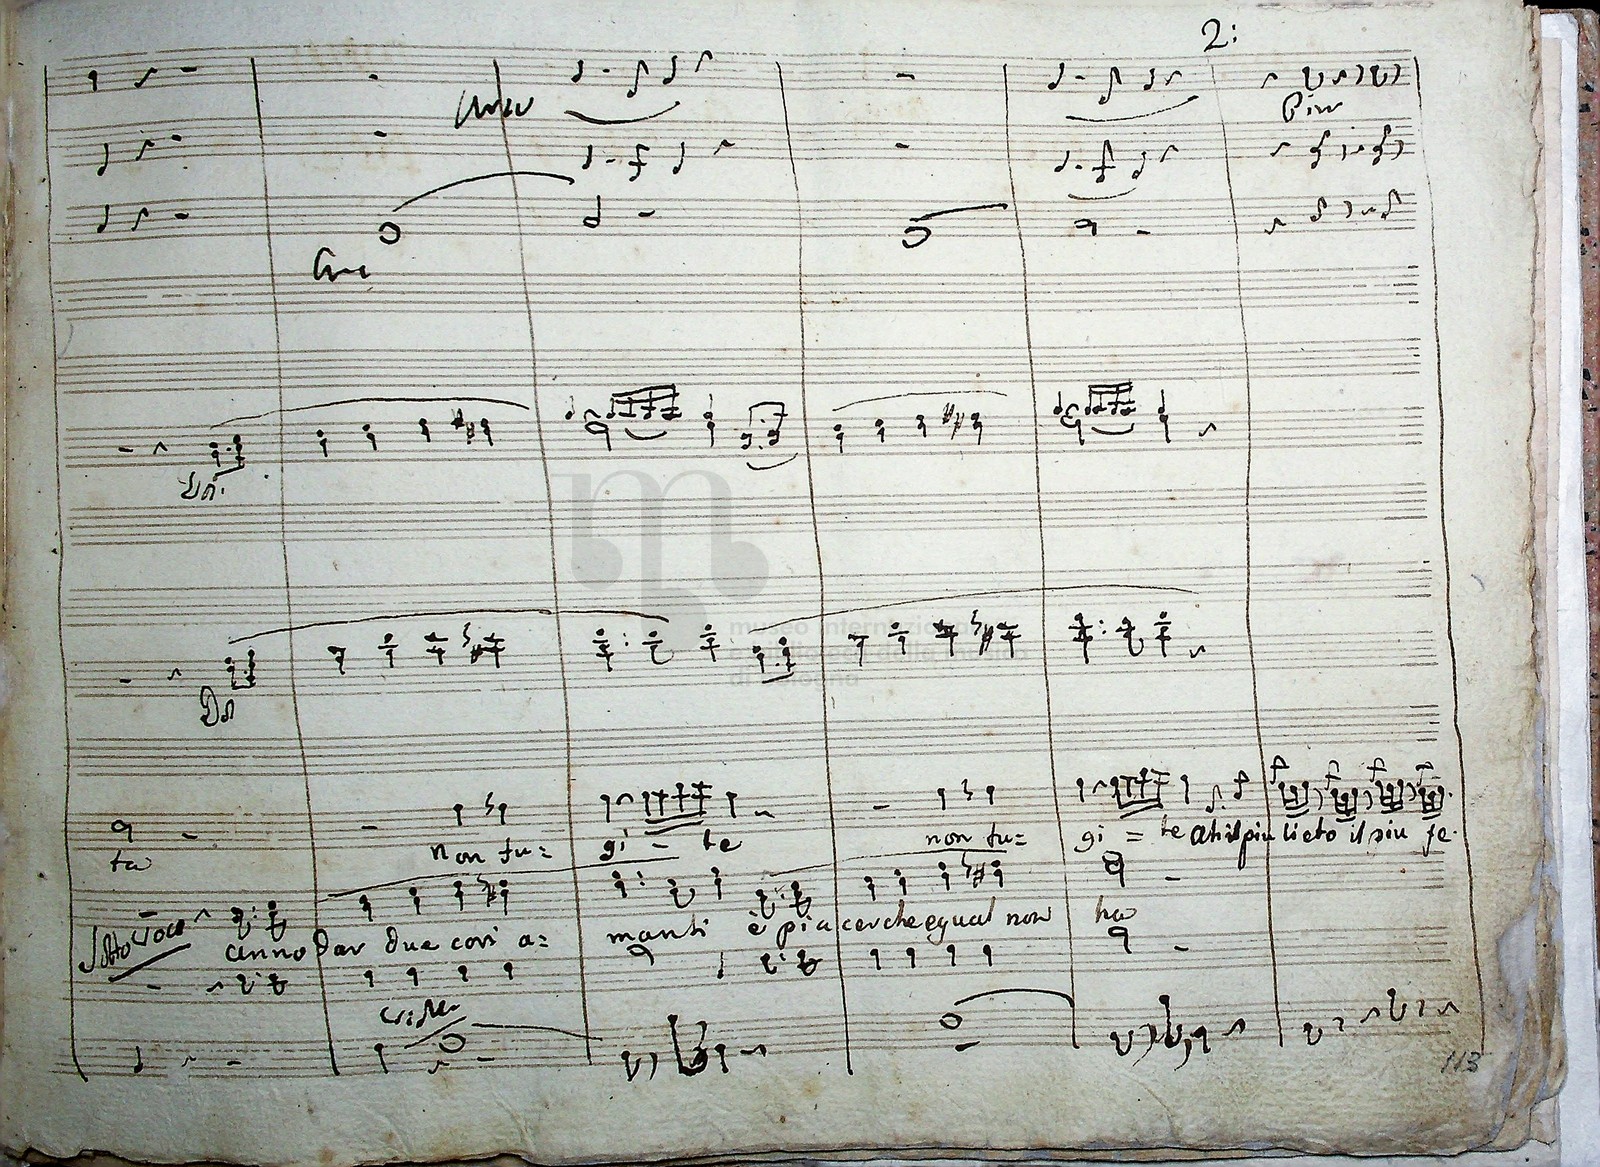 2:
museo internazionale
e biblioteca della musica
di bologna
ta
non fu=
gi - te
non fu=
gi = te ah il piu lieto il piu fe-
Sotto voce
anno Dar due cori a=
manti
è piacer che egual non
ha
113